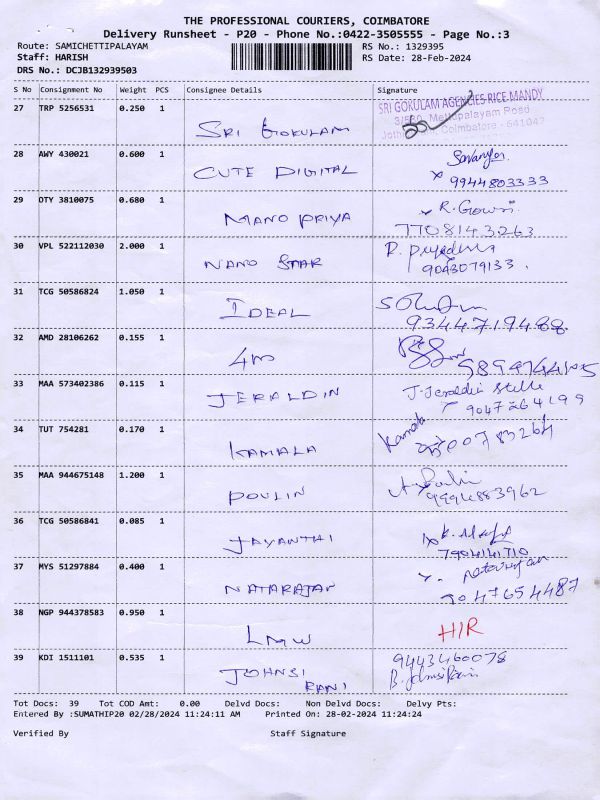 THE PROFESSIONAL COURIERS, COIMBATORE
Delivery Runsheet - P20 - Phone No.:0422-3505555 - Page No.:3
Route: SAMICHETTIPALAYAM
RS No.: 1329395
Staff: HARISH
RS Date: 28-Feb-2024
DRS No.: DCJB132939503
S No Consignment No Weight PCS Consignee Details Signature
27 TRP 5256531 0.250 1 SRI GOKULAM
SRI GOKULAM AGENCIES RICE MANDY
Mettupalayam Road
Coimbatore - 641047
28 AWY 430021 0.600 1 CUTE DIGITAL
9944803333
29 OTY 3810075 0.680 1 MANO PRIYA
R. Gowri
7708143263
30 VPL 522112030 2.000 1 NANO STAR
9043079133.
31 TCG 50586824 1.050 1 IDEAL
9344719488
32 AMD 28106262 0.155 1 4M
33 MAA 573402386 0.115 1 JERALDIN
9047264199
34 TUT 754281 0.170 1 KAMALA
Kamala
35 MAA 944675148 1.200 1 POULIN
9994883962
36 TCG 50586841 0.085 1 JAYANTHI
7904141710
37 MYS 51297884 0.400 1 NATARAJAN
9047654487
38 NGP 944378583 0.950 1 LMW
H/R
39 KDI 1511101 0.535 1 JOHNSI RANI
9443460078
B. Johnsi Rani
Tot Docs: 39 Tot COD Amt: 0.00 Delvd Docs: Non Delvd Docs: Delvy Pts:
Entered By :SUMATHIP20 02/28/2024 11:24:11 AM Printed On: 28-02-2024 11:24:24
Verified By Staff Signature